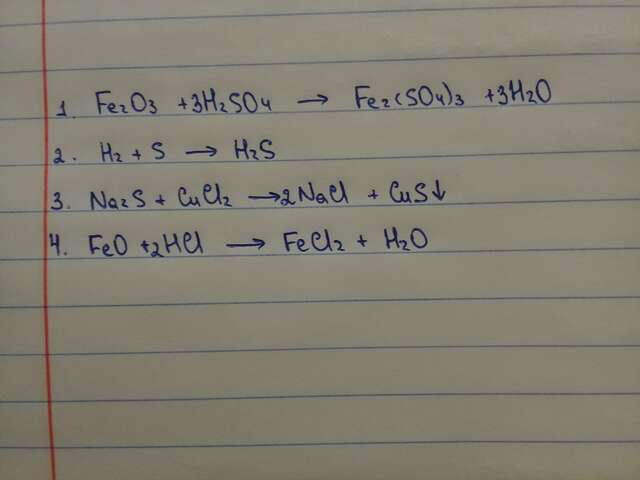 1. Fe2O3 +3H2SO4 → Fe2(SO4)3 +3H2O
2. H2 + S → H2S
3. Na2S + CuCl2 →2NaCl + CuS↓
4. FeO +2HCl → FeCl2 + H2O